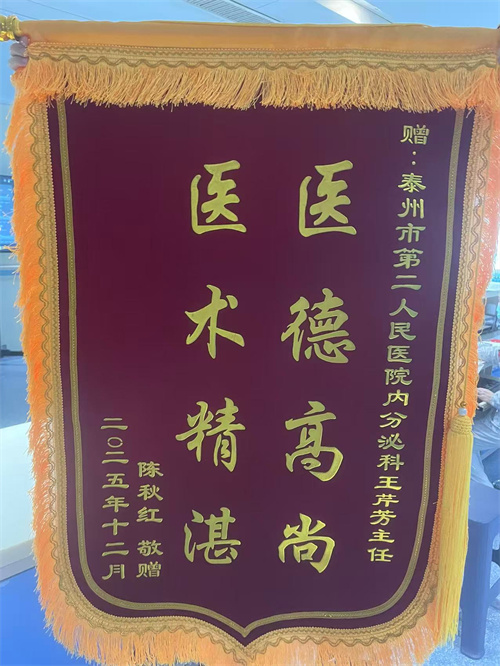 赠：泰州市第二人民医院内分泌科王芹芳主任
医德高尚
医术精湛
陈秋红 敬赠
二〇二五年十二月